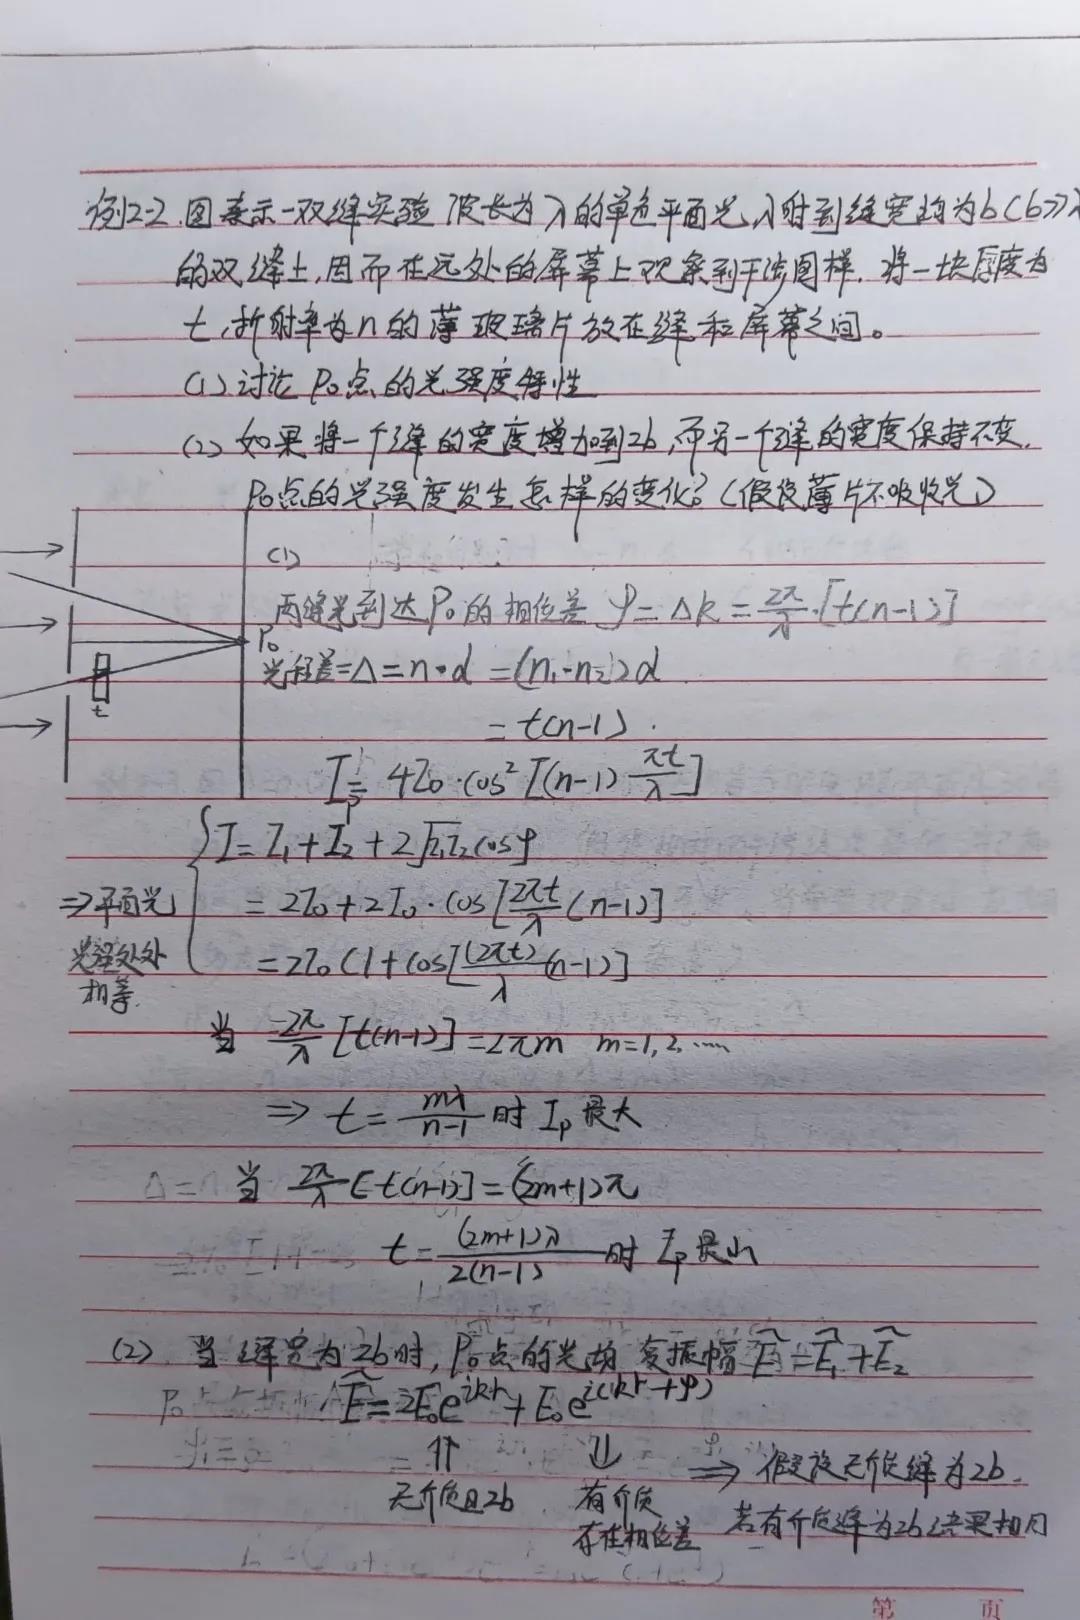 例2-2.图表示一双缝实验 波长为λ的单色平面光入射到缝宽均为b(b≫λ
的双缝上,因而在远处的屏幕上观察到干涉图样.将一块厚度为
t,折射率为n的薄玻璃片放在缝和屏幕之间。
(1)讨论P₀点的光强度特性
(2)如果将一个缝的宽度增加到2b,而另一个缝的宽度保持不变.
P₀点的光强度发生怎样的变化?(假设薄片不吸收光)
(1)
两缝光到达P₀的相位差 φ=Δk=2π/λ·[t(n-1)]
P₀
光程差=Δ=n·d=(n₁-n₂)d
t
=t(n-1).
I_P=4I₀·cos²[(n-1)πt/λ]
I=I₁+I₂+2√I₁I₂cosφ
⇒平面光
光强处处
相等.
=2I₀+2I₀·cos[2πt/λ(n-1)]
=2I₀(1+cos[(2πt)/λ(n-1)]
当 2π/λ[t(n-1)]=2πm m=1,2,……
⇒ t=mλ/n-1 时 I_P最大
当 2π/λ[t(n-1)]=(2m+1)π
t=(2m+1)λ/2(n-1) 时 I_P最小
(2) 当缝宽为2b时,P₀点的光场复振幅Ẽ=Ẽ₁+Ẽ₂
Ẽ=2E₀e^{ikr}+E₀e^{i(kr+φ)}
⇑ ⇓ ⇒假设无介质缝为2b.
无介质且2b 有介质 若有介质缝为2b结果相同
存在相位差
第 页